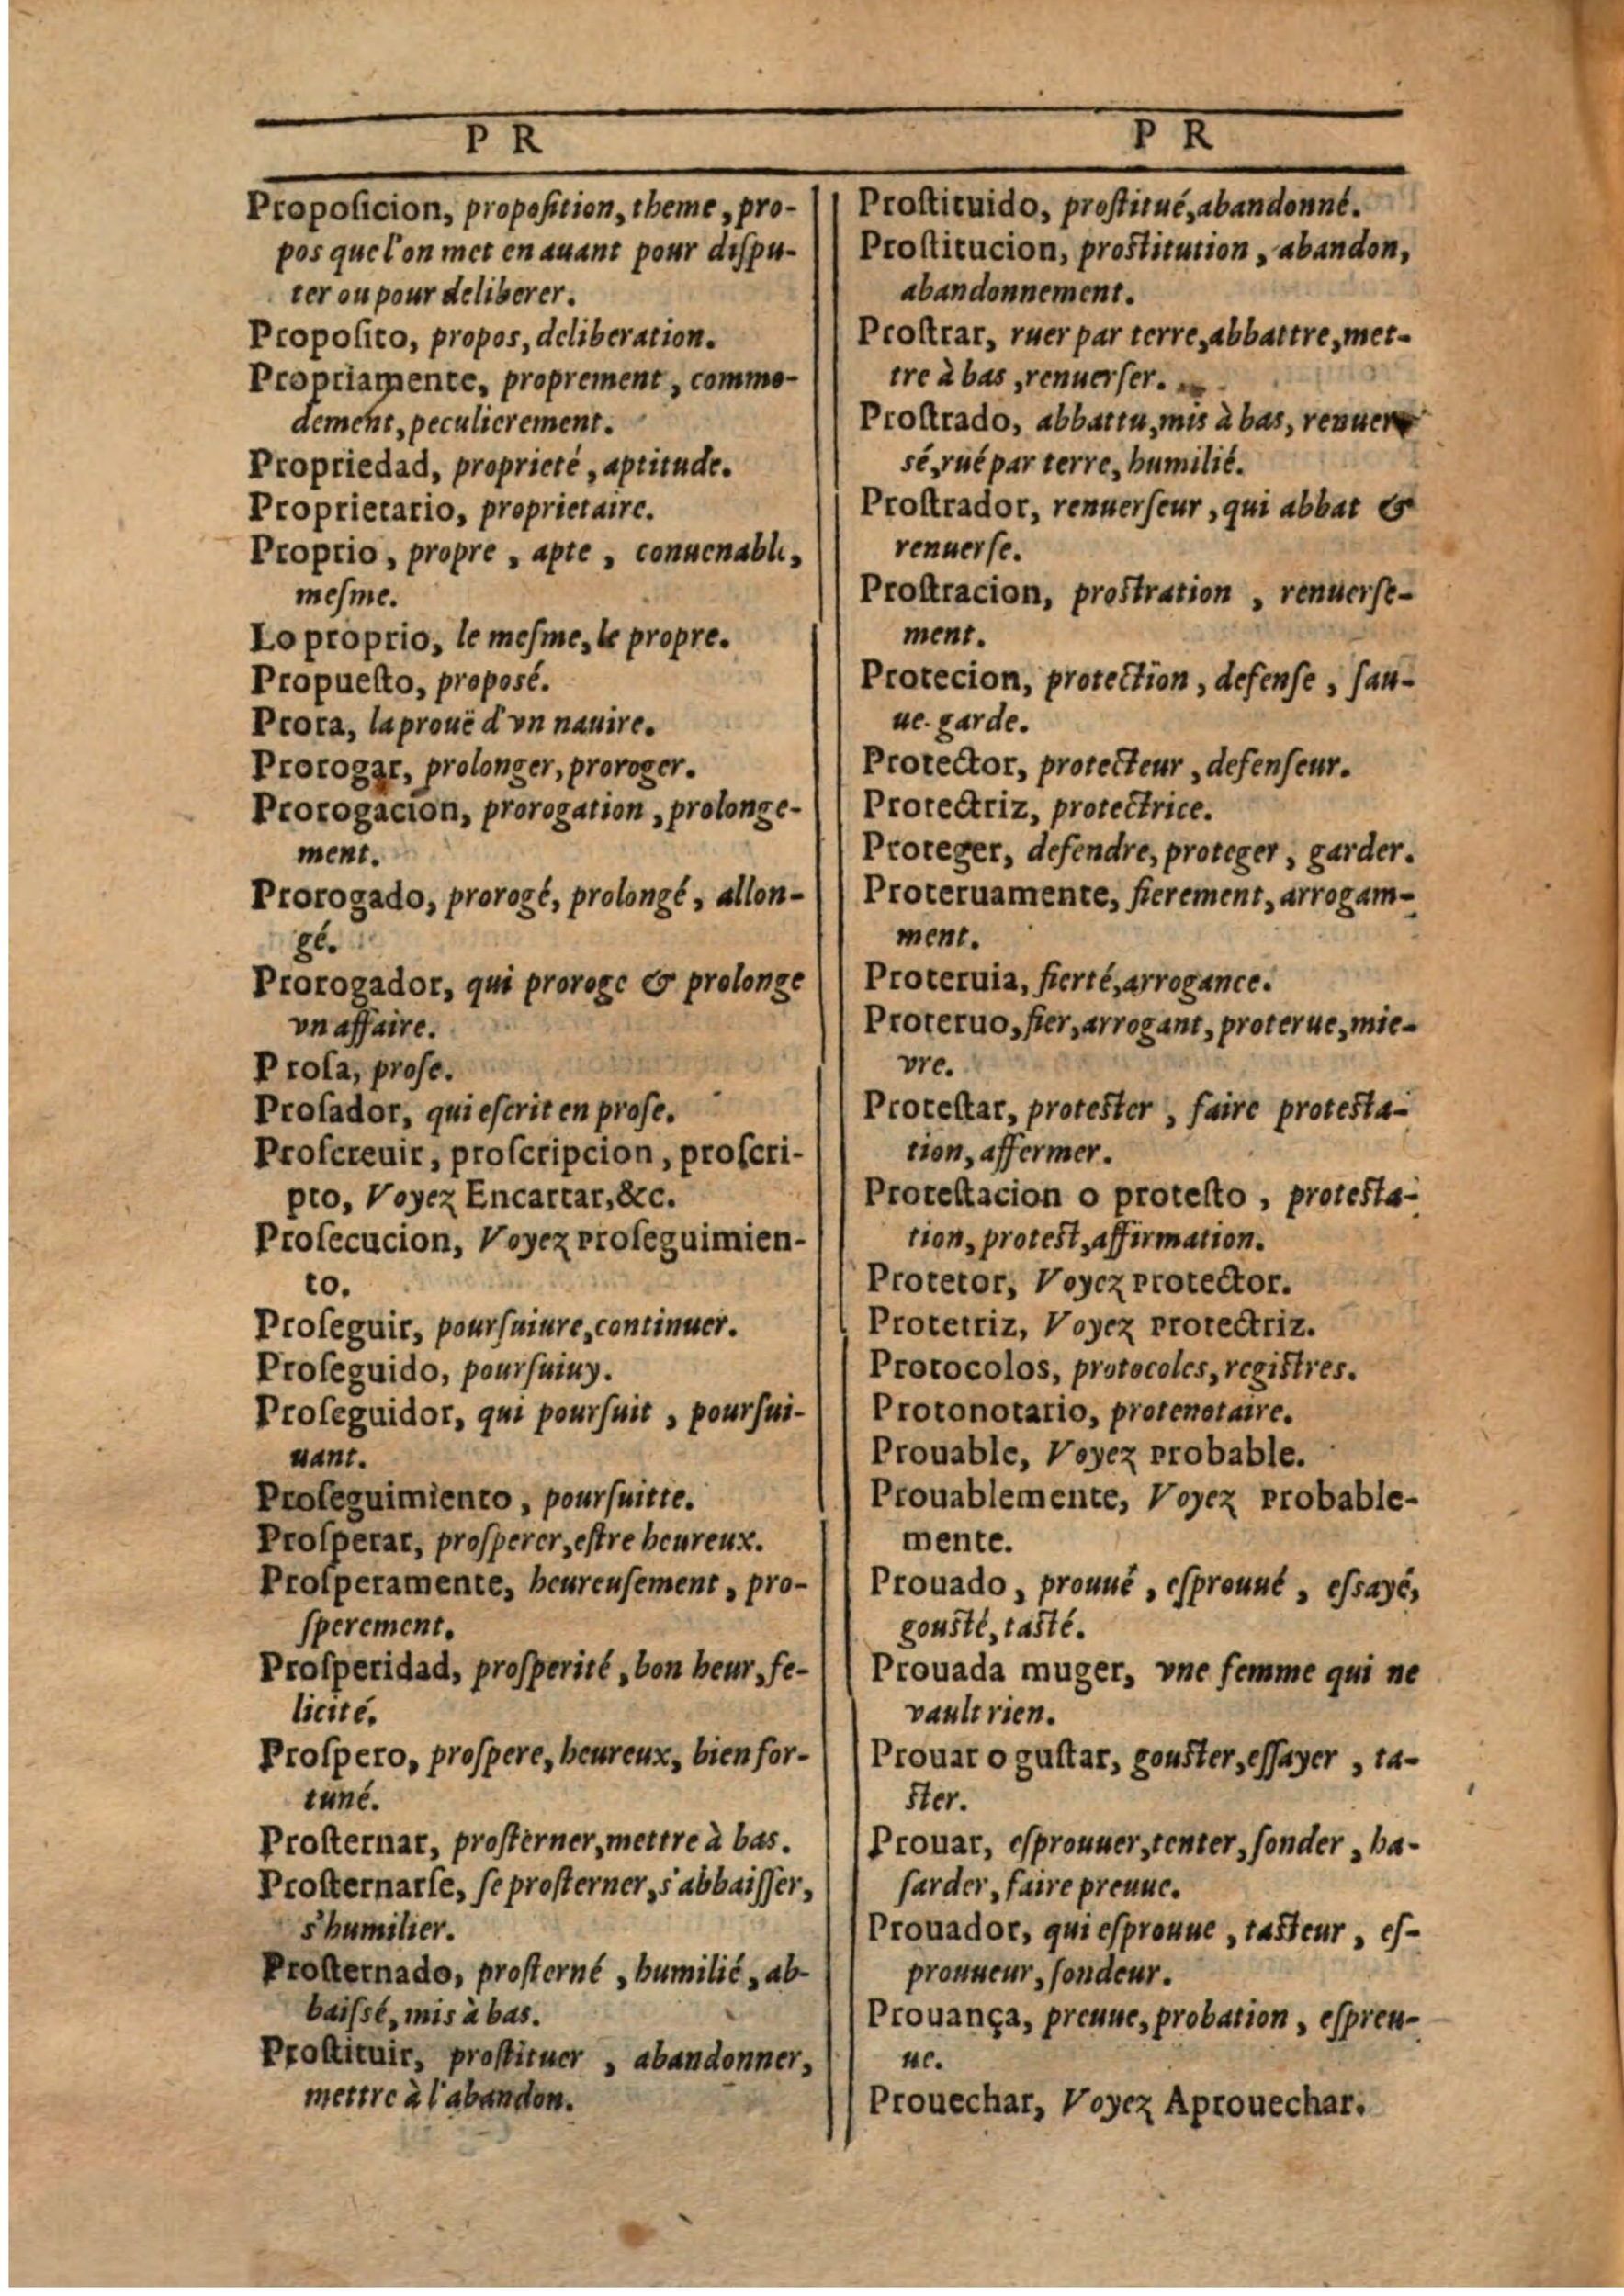 P R
Proposicion, proposition, theme, pro-
pos que l'on met en auant pour dispu-
ter ou pour deliberer.
Proposito, propos, deliberation.
Propriamente, proprement, commo-
dement, peculierement.
Propriedad, proprieté, aptitude.
Proprietario, proprietaire.
Proprio, propre, apte, conuenable,
mesme.
Lo proprio, le mesme, le propre.
Propuesto, proposé.
Prora, la prouë d'vn nauire.
Prorogar, prolonger, proroger.
Prorogacion, prorogation, prolonge-
ment.
Prorogado, prorogé, prolongé, allon-
gé.
Prorogador, qui proroge & prolonge
vn affaire.
Prosa, prose.
Prosador, qui escrit en prose.
Proscreuir, proscripcion, proscri-
pto, Voyez Encartar, &c.
Prosecucion, Voyez proseguimien-
to.
Proseguir, poursuiure, continuer.
Proseguido, poursuiuy.
Proseguidor, qui poursuit, poursui-
uant.
Proseguimiento, poursuitte.
Prosperar, prosperer, estre heureux.
Prosperamente, heureusement, pro-
sperement.
Prosperidad, prosperité, bon heur, fe-
licité.
Prospero, prospere, heureux, bien for-
tuné.
Prosternar, prosterner, mettre à bas.
Prosternarse, se prosterner, s'abbaisser,
s'humilier.
Prosternado, prosterné, humilié, ab-
baissé, mis à bas.
Prostituir, prostituer, abandonner,
mettre à l'abandon.
P R
Prostituido, prostitué, abandonné.
Prostitucion, prostitution, abandon,
abandonnement.
Prostrar, ruer par terre, abbattre, met-
tre à bas, renuerser.
Prostrado, abbattu, mis à bas, renuer-
sé, rué par terre, humilié.
Prostrador, renuerseur, qui abbat &
renuerse.
Prostracion, prostration, renuerse-
ment.
Protecion, protection, defense, sau-
ue-garde.
Protector, protecteur, defenseur.
Protectriz, protectrice.
Proteger, defendre, proteger, garder.
Proteruamente, fierement, arrogam-
ment.
Proteruia, fierté, arrogance.
Proteruo, fier, arrogant, proterue, mie-
vre.
Protestar, protester, faire protesta-
tion, affermer.
Protestacion o protesto, protesta-
tion, protest, affirmation.
Protetor, Voyez protector.
Protetriz, Voyez protectriz.
Protocolos, protocoles, registres.
Protonotario, protenotaire.
Prouable, Voyez probable.
Prouablemente, Voyez probable-
mente.
Prouado, prouué, esprouué, essayé,
gousté, tasté.
Prouada muger, vne femme qui ne
vault rien.
Prouar o gustar, gouster, essayer, ta-
ster.
Prouar, esprouuer, tenter, sonder, ha-
sarder, faire preuue.
Prouador, qui esprouue, tasteur, es-
prouueur, sondeur.
Prouança, preuue, probation, espreu-
ue.
Prouechar, Voyez Aprouechar.